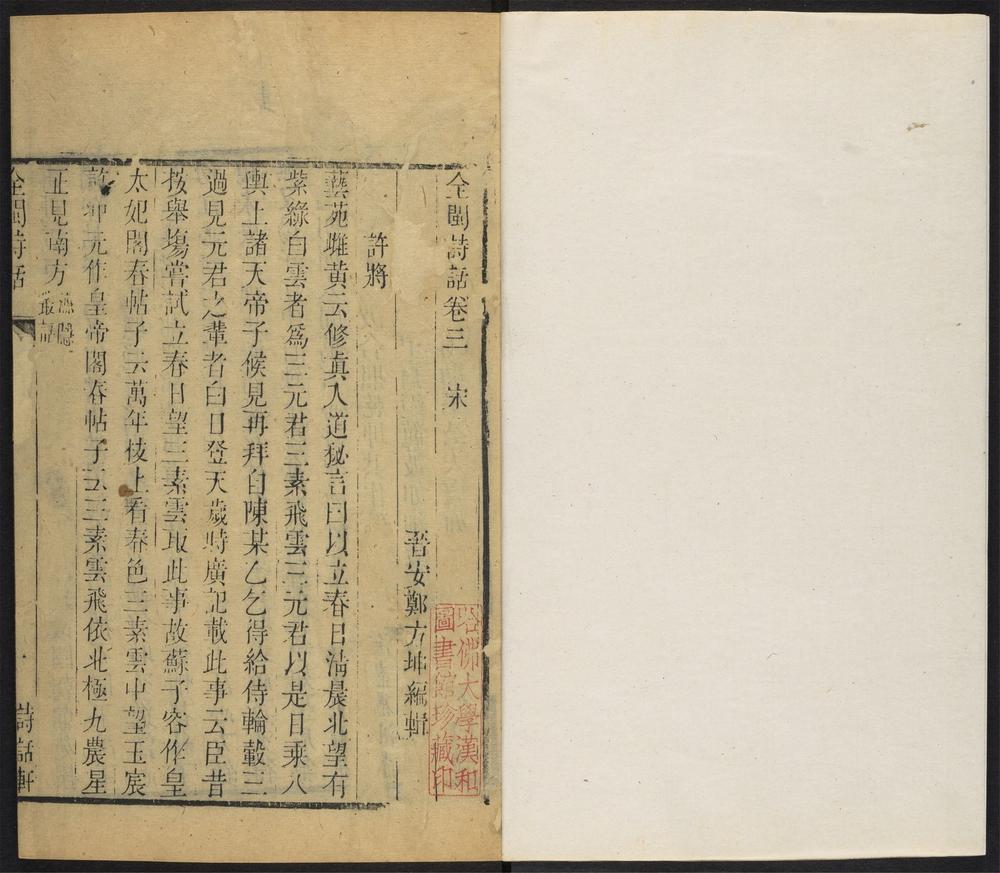 全閩詩話卷三　宋
晉安鄭方坤編輯
許將
藝苑雌黃云修眞入道秘言曰以立春日淸晨北望有
紫綠白雲者爲三元君三素飛雲三元君以是日乘八
輿上諸天帝子候見再拜自陳某乙乞得給侍輪轂三
過見元君之輩者白日登天歲時廣記載此事云臣昔
按舉塲嘗試立春日望三素雲取此事故蘇子容作皇
太妃閣春帖子云萬年枝上看春色三素雲中望玉宸
許冲元作皇帝閣春帖子云三素雲飛依北極九農星
正見南方漁隱叢話
全閩詩話
詩話軒
哈佛大學漢和
圖書館珍藏印